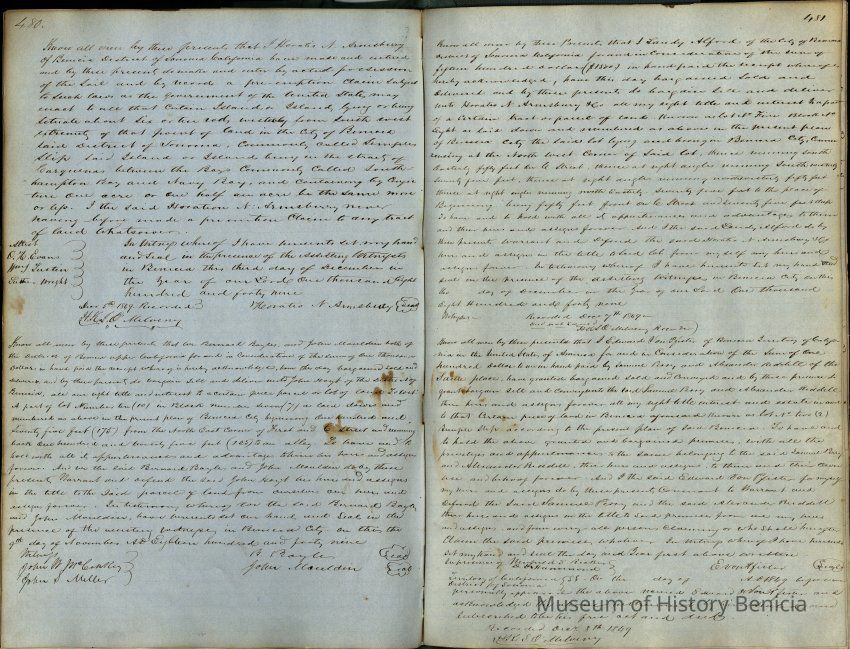 480.
Know all men by these presents that I Horatio N. Arnsbury
of Benicia District of Sonoma California have made and entered
and by these presents donate and enter by actual possession
of the Soil and by record a preemption Claim Subject
to Such laws as the Government of the United States may
enact to all that Certain Island or Islands lying or being
Situate about Six or two rods westerly from South west
extremity of that point of land in the City of Benicia
Said District of Sonoma, Commonly called Semples
Slip Said Island or Islands being in the Straits of
Carquenas between the Bays Commonly Called South
hampton Bay and Navy Bay, and Containing by Conjec
ture one acre or one half an acre be the Same more
or less. I the Said Horatio N. Arnsbury never
having before made a preemption Claim to any tract
of land whatsoever.
Attest
O. H. Evans
Wright
In Witness whereof I have hereunto Set my hand
and Seal in the presence of the attesting Witnesses
in Benicia this third day of December in
the Year of our Lord One thousand Eight
hundred and forty nine
Dec 5th 1849 Recorded
Horatio N Arnsbury Seal
Know all men by these presents that We Bernard Bayle, and John Moulden both of
the District of Benicia upper California for and in Consideration of the Sum of One thousand
dollars in hand paid the receipt whereof is hereby acknowledged, have this day bargained Sold and
delivered and by these presents do bargain Sell and deliver unto John Hoyt of the District of
Benicia, all our right title and interest to a certain piece parcel or lot of land
A part of lot Number ten (10) in Block Number Seven (7) as laid down and
numbered as above in the present plan of Benicia City beginning One hundred and
Seventy five feet (175) from the North East Corner of First and Street and running
back One hundred and twenty five feet (125) to an alley. To have and to
hold with all it appurtenances and advantages to him his heirs and assigns
forever. And we the Said Bernard Bayle and John Moulden do by these
presents Warrant and defend the Said John Hoyt his heirs and assigns
in the title to the Said parcel of land from ourselves our heirs and
assigns forever. In testimony whereof We the Said Bernard Bayle
and John Moulden have hereunto Set our hands and Seals in the
presence of the assisting witnesses in Benicia City on this the
9th day of November AD Eighteen hundred and forty nine
Witness
John W. McConkey
John S Miller
B. Bayle Seal
John Moulden Seal
481
Know all men by these Presents, that I Landy Alford of the City of Benicia
District of Sonoma California for and in Consideration of the Sum of
fifteen hundred dollars ($1500) in hand paid the receipt whereof is
hereby acknowledged, have this day bargained Sold and
delivered and by these presents do bargain Sell and deliver
unto Horatio N. Arnsbury &Co all my right title and interest to a part
of a certain tract or parcel of land Known as lot No Five Block No
Eight as laid down and numbered as above in the present plan
of Benicia City the Said lot lying and being in Benicia City, Comm
encing at the North West Corner of Said lot, thence running South
Easterly fifty feet on C Street, thence at right angles running South westerly
Seventy five feet, thence at right angles running northwesterly fifty feet
thence at right angles running north Easterly Seventy five feet to the place of
Beginning being fifty feet front on C Street and Seventy five feet deep
To have and to hold with all it appurtenances and advantages to them
and their heirs and assigns forever. And I the Said Landy Alford do by
these presents Warrant and Defend the Said Horatio N. Arnsbury &Co
heirs and assigns in the title to Said lot from myself my heirs and
assigns forever. In testimony whereof I have hereunto Set my hand and
Seal in the presence of the attesting Witnesses at Benicia City on this
day of December in the Year of our Lord One thousand
Eight Hundred and forty nine
Witness Recorded Dec 7th 1849
Know all men by these presents that I Edward Von Pfister of Benicia Territory of Califor
nia in the United States of America for and in Consideration of the Sum of One
hundred dollars to me in hand paid by Samuel Perry and Alexander Riddell of the
Same place, have granted bargained Sold and Conveyed and by these presents do
grant bargain Sell and Convey unto the Said Samuel Perry and Alexander Riddell
their heirs and assigns forever all my right title interest and estate in and
to that Certain piece of land in Benicia aforesaid Known as lot No two (2)
Semple Slip according to the present plan of Said Benicia. To have and
to hold the above granted and bargained premises with all the
privileges and appurtenances to the Same belonging to the Said Samuel Perry
and Alexander Riddell their heirs and assigns to them and their Own
use and behoof forever. And I the Said Edward Von Pfister for myself
my heirs and assigns do by these presents Covenant to Warrant and
Defend the Said Samuel Perry and the Said Alexander Riddell
their heirs and assigns in the title to Said premises from me my heirs
and assigns, and from every all persons Claiming or who Should hereafter
Claim the Said premises whatever. In Witness whereof I have hereunto
Set my hand and Seal the day and Year first above written
In presence of
E. Von Pfister Seal
Territory of California } SS On the day of A D 1849 before me
District of Sonoma
personally appeared the above named Edward Von Pfister and
acknowledged
Subscribed to be his free act and deed.
Recorded Dec. 8th 1849
Museum of History Benicia